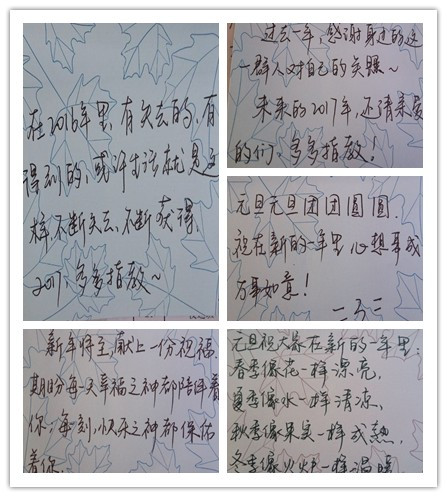 在2016年里，有失去的，有
得到的，或许生活就是这
样，不断失去，不断获得，
2017，多多指教~
过去一年，感谢身边的这
一群人对自己的关照~
未来的2017年，还请亲爱
的们，多多指教！
元旦元旦团团圆圆，
祝在新的一年里心想事成
万事如意！
新年将至，献上一份祝福，
期盼每一天幸福之神都陪伴着
你；每刻，快乐之神都保佑
着你
元旦祝大家在新的一年里：
春季像花一样漂亮，
夏季像水一样清凉，
秋季像果实一样成熟，
冬季像火炉一样温暖